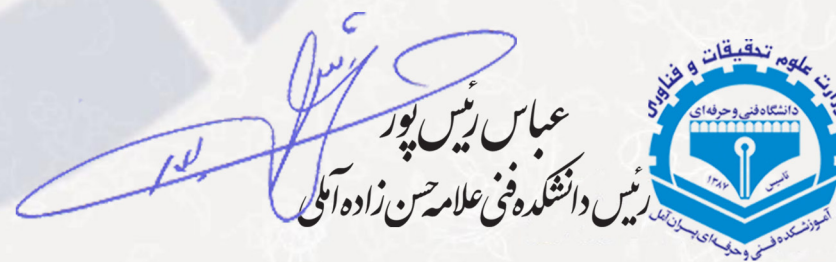 عباس رئیس پور
رئیس دانشکده فنی علامه حسن زاده آملی
وزارت علوم تحقیقات و فناوری
دانشگاه فنی و حرفه ای
تاسیس
۱۳۸۷
آموزشکده فنی و حرفه ای پسران آمل